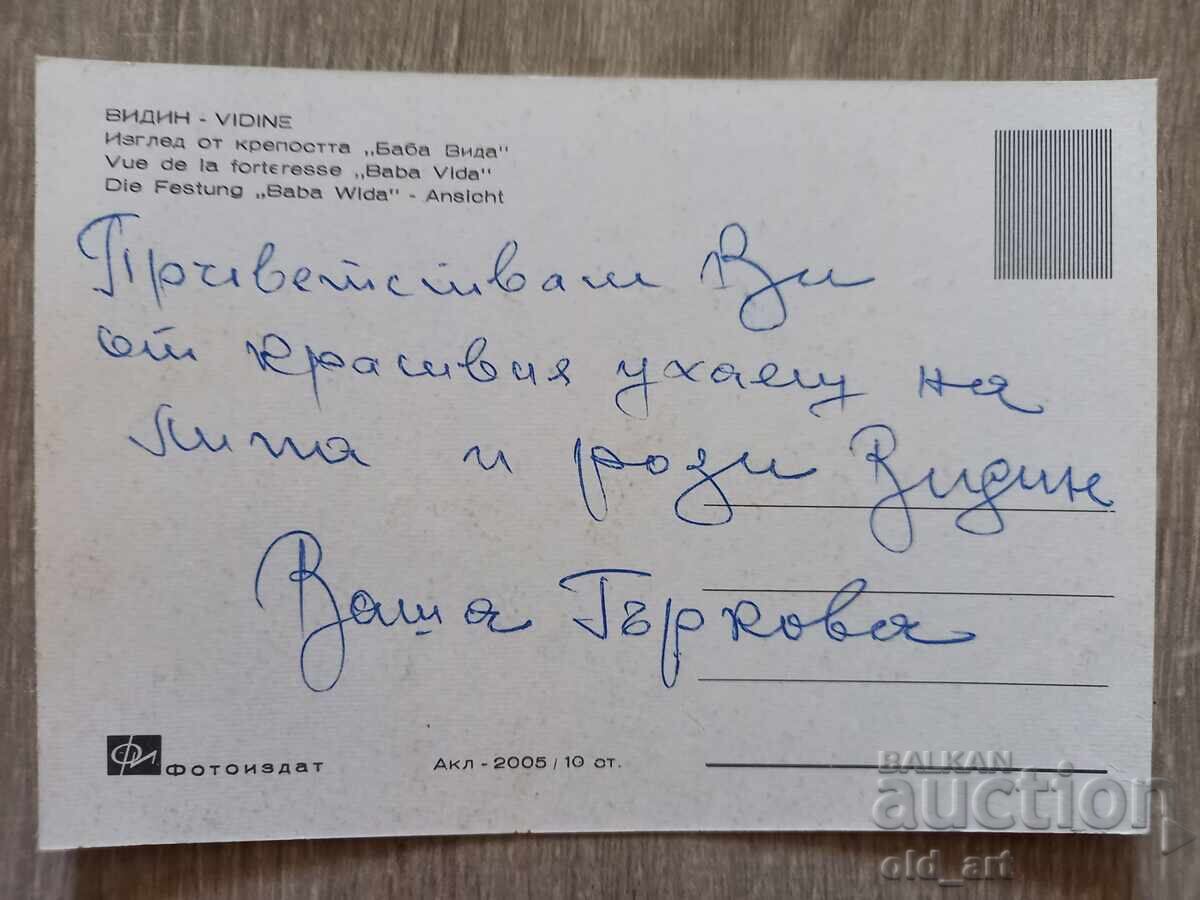 ВИДИН - VIDINE
Изглед от крепостта „Баба Вида"
Vue de la forteresse „Baba Vida"
Die Festung „Baba Wida" - Ansicht
Приветствам Ви
от красивия ухаещ на
липа и рози Видин
Ваша Гъркова
ФИ Фотоиздат
Акл - 2005 / 10 ст.
BALKAN
auction
old_art